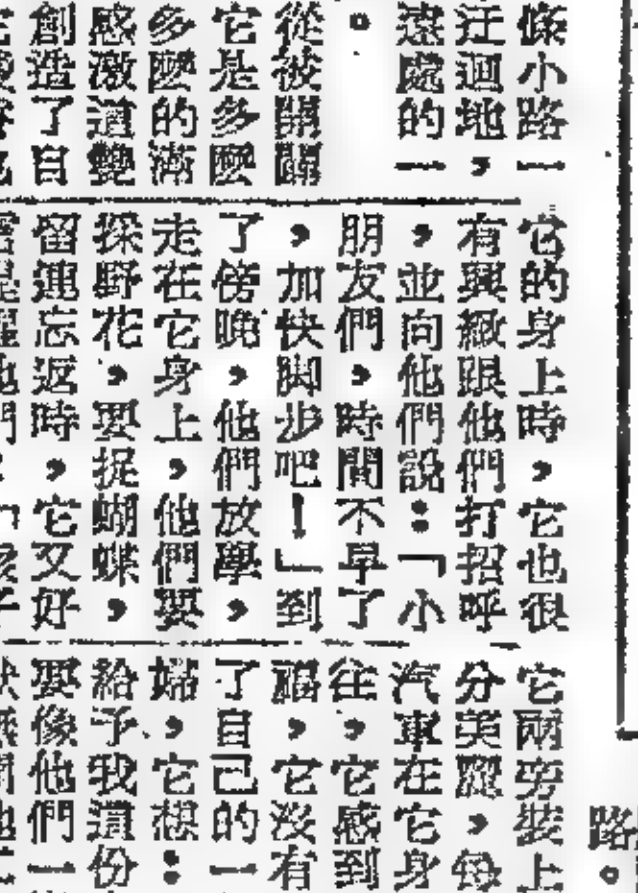 條小路一
迂迴地，
遠處的一
。
從被開闢
它是多麼
多麼的滿
感激這雙
創造了自
它的身上時，它也很
有興緻跟他們打招呼
，並向他們說：「小
朋友們，時間不早了
，加快脚步吧！」到
了傍晚，他們放學，
走在它身上，他們要
採野花，要捉蝴蝶，
留連忘返時，它又好
它兩旁裝上
分美麗，每
汽車在它身
往，它感到
福，它沒有
了自己的一
婦，它想：
給予我這份
要像他們一
路
。